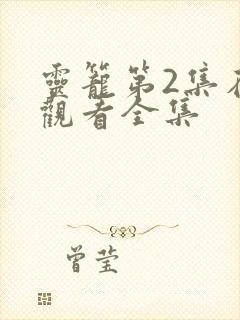 靈籠第2集在
觀看全集
曾莹